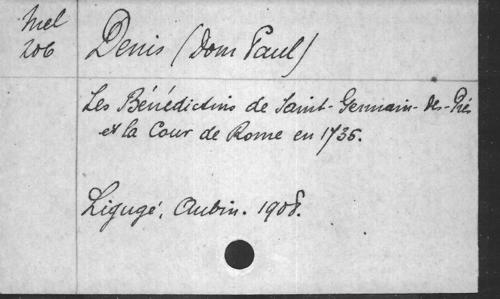 Mel
206
Denis (Dom Paul)
Les Bénédictins de Saint-Germain-des-Prés
et la Cour de Rome en 1735.
Ligugé, Aubin. 1908.